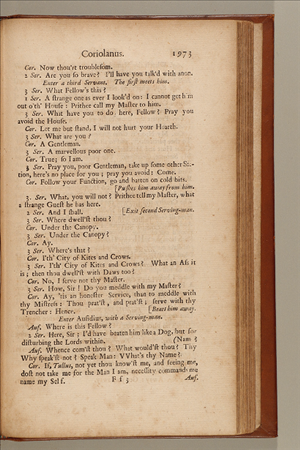 Coriolanus. 1973
Cor. Now thou'rt troublesom.
2 Ser. Are you so brave? I'll have you talk'd with anon.
Enter a third Servant. The first meets him.
3 Ser. What Fellow's this?
1 Ser. A strange one as ever I look'd on: I cannot get him
out o'th' House: Prithee call my Master to him.
3 Ser. What have you to do here, Fellow? Pray you
avoid the House.
Cor. Let me but stand, I will not hurt your Hearth.
3 Ser. What are you?
Cor. A Gentleman.
3 Ser. A marvellous poor one.
Cor. True; so I am.
3 Ser. Pray you, poor Gentleman, take up some other Sta-
tion, here's no place for you; pray you avoid: Come.
Cor. Follow your Function, go and batten on cold bits.
[Pushes him away from him.
3 Ser. What, you will not? Prithee tell my Master, what
a strange Guest he has here.
2 Ser. And I shall. [Exit second Serving-man.
3 Ser. Where dwell'st thou?
Cor. Under the Canopy.
3 Ser. Under the Canopy?
Cor. Ay.
3 Ser. Where's that?
Cor. I'th' City of Kites and Crows.
3 Ser. I'th' City of Kites and Crows? What an Ass it
is; then thou dwell'st with Daws too?
Cor. No, I serve not thy Master.
3 Ser. How, Sir! Do you meddle with my Master?
Cor. Ay, 'tis an honester Service, than to meddle with
thy Mistress: Thou prat'st, and prat'st; serve with thy
Trencher: Hence. [Beats him away.
Enter Aufidius, with a Serving-man.
Auf. Where is this Fellow?
2 Ser. Here, Sir; I'd have beaten him like a Dog, but for
disturbing the Lords within. (Name?
Auf. Whence com'st thou? What would'st thou? Thy
Why speak'st not? Speak Man: VVhat's thy Name?
Cor. If, Tullus, not yet thou know'st me, and seeing me,
dost not take me for the Man I am, necessity commands me
name my Self. F f 3 Auf.